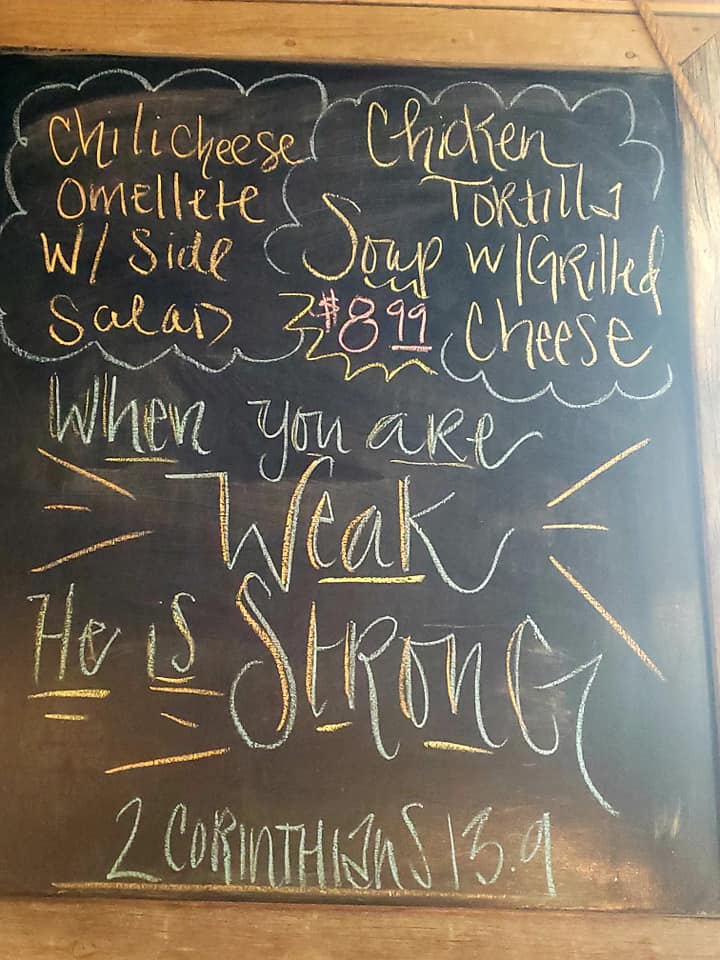 Chili cheese
Omellete
w/ Side
Salad
Chicken
Tortilla
Soup w/ Grilled
Cheese
$8.99
When you are
Weak
He is Strong
2 Corinthians 13.9